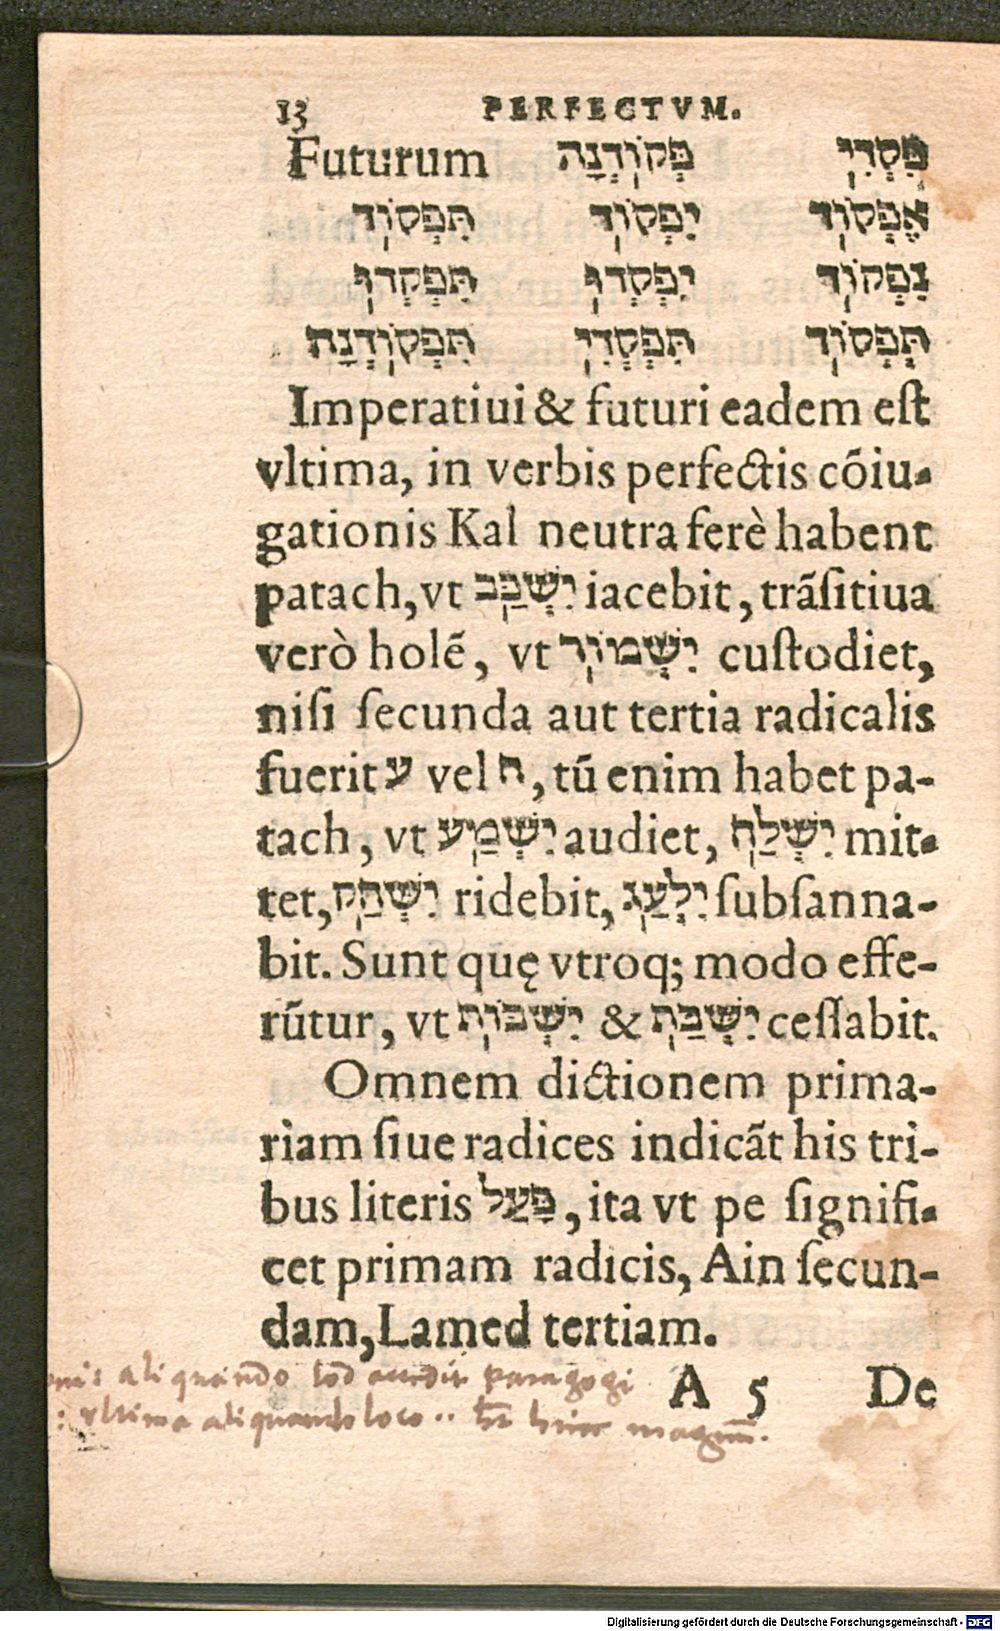 13 PERFECTVM.
Futurum פְּקוֹדְנָה פִּקְדִי
אֶפְקוֹד יִפְקוֹד תִּפְקוֹד
נִפְקוֹד יִפְקְדוּ תִּפְקְדוּ
תִּפְקוֹד תִּפְקְדִי תִּפְקוֹדְנָה
Imperatiui & futuri eadem eſt
vltima, in verbis perfectis cõiu-
gationis Kal neutra ferè habent
patach, vt יִשְׁכַּב iacebit, trãſitiua
verò holẽ, vt יִשְׁמוֹר cuſtodiet,
niſi ſecunda aut tertia radicalis
fuerit ע vel ח, tũ enim habet pa-
tach, vt יִשְׁמַע audiet, יִשְׁלַח mit-
tet, יִשְׂחַק ridebit, יִלְעַג ſubſanna-
bit. Sunt quę vtroq; modo effe-
rũtur, vt יִשְׁבּוֹת & יִשְׁבַּת ceſſabit.
Omnem dictionem prima-
riam ſiue radices indicãt his tri-
bus literis פָּעַל, ita vt pe ſignifi-
cet primam radicis, Ain ſecun-
dam, Lamed tertiam.
aliquando Iod accedit paragogi
A 5 De
vltima aliquando loco
Digitalisierung gefördert durch die Deutsche Forschungsgemeinschaft - DFG